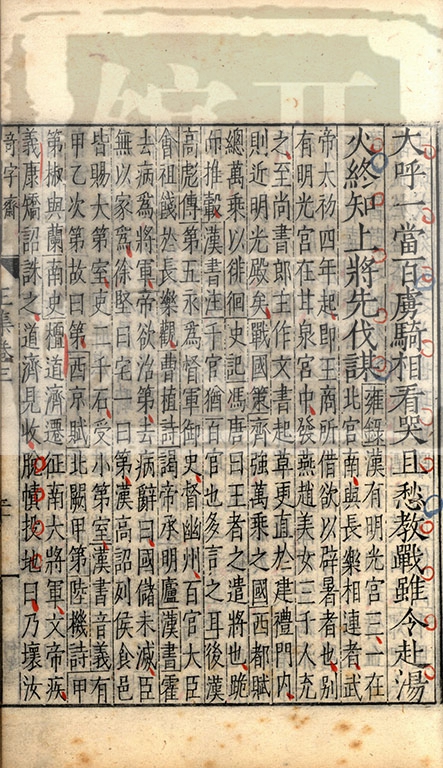 大呼一當百虜騎相看哭且愁教戰雖令赴湯
火終知上將先伐謀雍錄漢有明光宮三一在
北宮南與長樂相連者武
帝太初四年起即王商所借欲以辟暑者也別
有明光宮在甘泉宮中發燕趙美女三千人充
之至尚書郎主作文書起草更直於建禮門内
則近明光殿矣戰國策齊強萬乘之國西都賦
總萬乘以徘徊史記馮唐曰王者之遣將也跪
而推轂漢書注千官猶百官也多言之耳後漢
高彪傳第五永為督軍御史督幽州百官大臣
會祖餞於長樂觀曹植詩謁帝承明廬漢書霍
去病為將軍帝欲治第去病辭曰國儲未滅臣
無以家為徐堅曰宅一曰第漢高詔列侯食邑
皆賜大第室吏二千石受小第室漢書音義有
甲乙次第故曰第西京賦北闕甲第陸機詩甲
第椒與蘭南史檀道濟遷征南大將軍文帝疾
義康矯詔誅之道濟見收脫幘投地曰乃壞汝
奇字齋